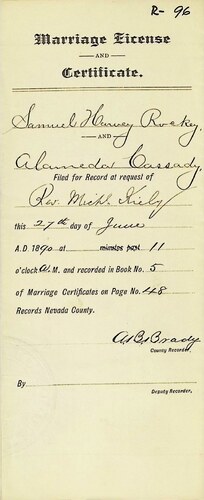 R- 96
Marriage License
AND
Certificate.
Samuel Harvey Rockey
AND
Alameda Cassady
Filed for Record at request of
Rev. Michl Kiely
this 27th day of June
A.D. 1890 at minutes past 11
o'clock A.M. and recorded in Book No. 5
of Marriage Certificates on Page No. 148
Records Nevada County.
A.B. Brady
County Recorder.
By
Deputy Recorder.